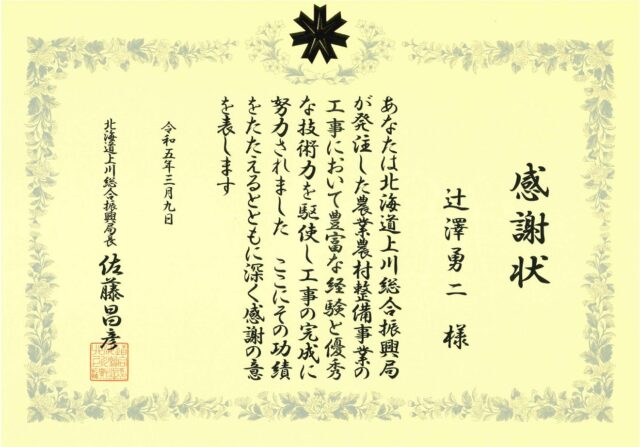 感謝状
辻澤勇二 様
あなたは北海道上川総合振興局
が発注した農業農村整備事業の
工事において豊富な経験と優秀
な技術力を駆使し工事の完成に
努力されました ここにその功績
をたたえるとともに深く感謝の意
を表します
令和五年三月九日
北海道上川総合振興局長 佐藤昌彦